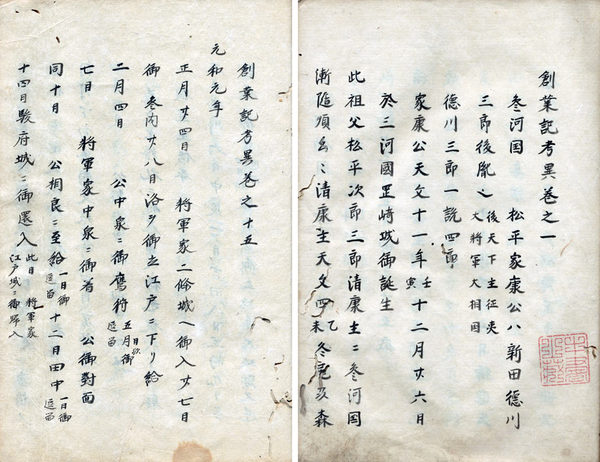 創業記考異巻之一
参河国 松平家康公ハ新田徳川
三郎後胤也 後天下主征夷大将軍太相国
徳川三郎一説四郎
家康公天文十一年壬寅十二月廿六日
於三河國岡崎城御誕生
此祖父松平次郎三郎清康生ニ参河国
清康生天文四乙未冬尾及森
創業記考異巻之十五
元和元年
正月廿四日 将軍家二條城ヘ御入廿七日
御参内廿八日洛ヲ御立江戸ニ下リ給
二月四日 公中泉ニ御鷹狩 五月御逗留
七日 将軍家中泉ニ御着 公御對面
同十日 公相良ニ至給 一日御逗留 十二日田中 一日御逗留
十四日駿府城ニ御還入 此日将軍家江戸城ニ御歸入